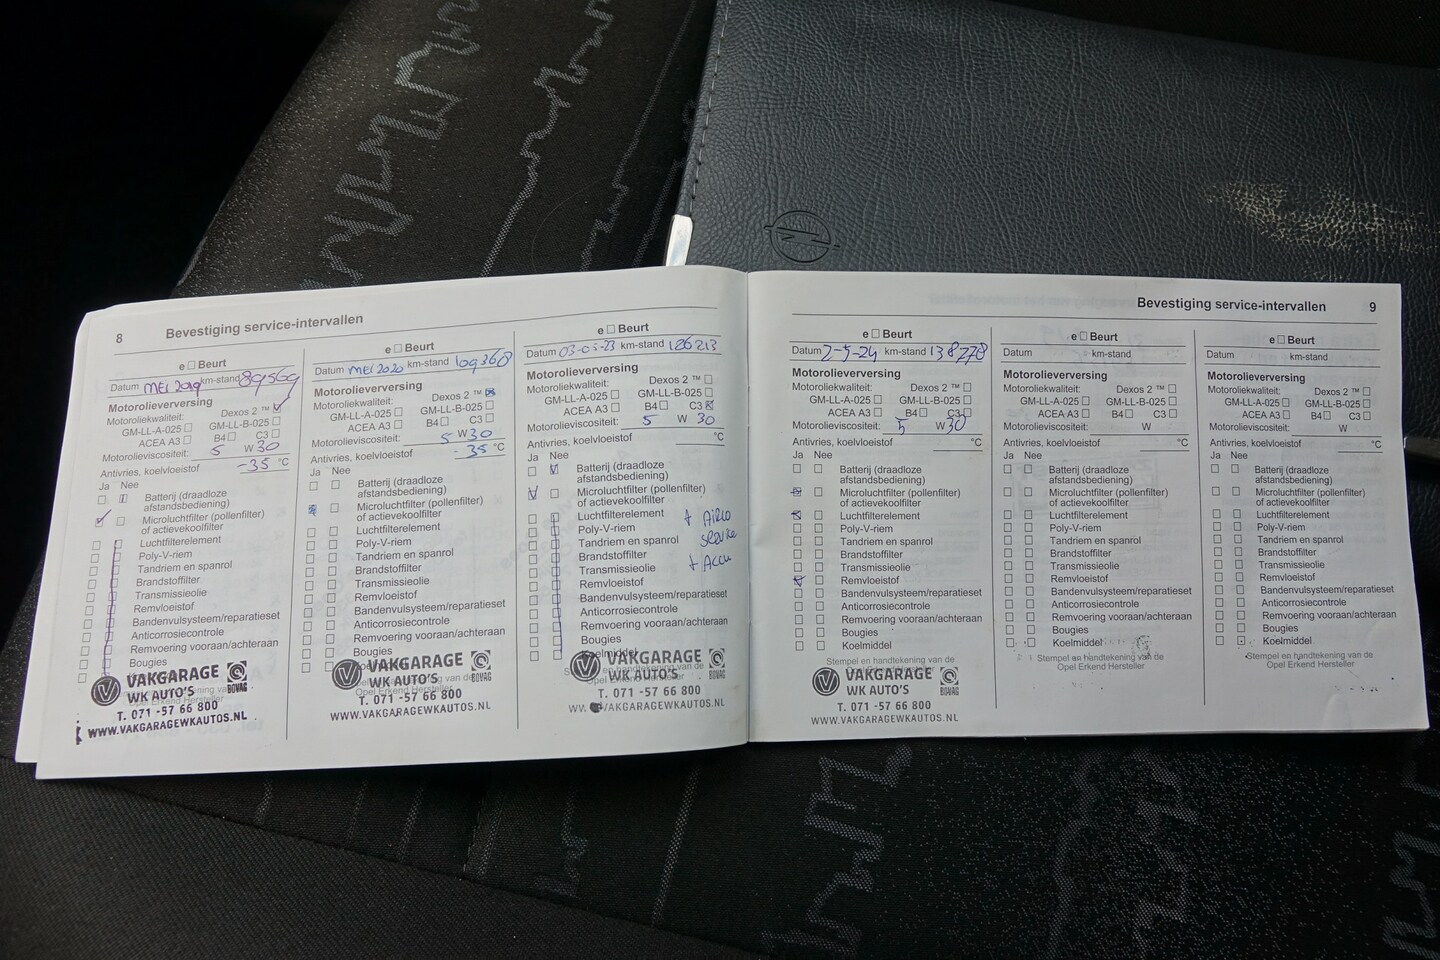 8 Bevestiging service-intervallen
e □ Beurt
Datum MEI 2019 km-stand 89569
Motorolieverversing
Motoroliekwaliteit: Dexos 2 ™ ☑
GM-LL-A-025 □ GM-LL-B-025 □
ACEA A3 □ B4 □ C3 □
Motorolieviscositeit: 5 W 30
Antivries, koelvloeistof -35 °C
Ja Nee
Batterij (draadloze
afstandsbediening)
Microluchtfilter (pollenfilter)
of actievekoolfilter
Luchtfilterelement
Poly-V-riem
Tandriem en spanrol
Brandstoffilter
Transmissieolie
Remvloeistof
Bandenvulsysteem/reparatieset
Anticorrosiecontrole
Remvoering vooraan/achteraan
Bougies
VAKGARAGE
WK AUTO'S
BOVAG
T. 071 -57 66 800
WWW.VAKGARAGEWKAUTOS.NL
e □ Beurt
Datum MEI 2020 km-stand 109368
Motorolieverversing
Motoroliekwaliteit: Dexos 2 ™ ☒
GM-LL-A-025 □ GM-LL-B-025 □
ACEA A3 □ B4 □ C3 □
Motorolieviscositeit: 5 W 30
Antivries, koelvloeistof -35 °C
Ja Nee
Batterij (draadloze
afstandsbediening)
Microluchtfilter (pollenfilter)
of actievekoolfilter
Luchtfilterelement
Poly-V-riem
Tandriem en spanrol
Brandstoffilter
Transmissieolie
Remvloeistof
Bandenvulsysteem/reparatieset
Anticorrosiecontrole
Remvoering vooraan/achteraan
Bougies
VAKGARAGE
WK AUTO'S
BOVAG
Opel Erkend Hersteller
T. 071 -57 66 800
WWW.VAKGARAGEWKAUTOS.NL
e □ Beurt
Datum 03-03-23 km-stand 126213
Motorolieverversing
Motoroliekwaliteit: Dexos 2 ™ □
GM-LL-A-025 □ GM-LL-B-025 □
ACEA A3 □ B4 □ C3 ☒
Motorolieviscositeit: 5 W 30
Antivries, koelvloeistof °C
Ja Nee
Batterij (draadloze
afstandsbediening)
Microluchtfilter (pollenfilter)
of actievekoolfilter
Luchtfilterelement + Airco
Poly-V-riem
Tandriem en spanrol
Brandstoffilter
Transmissieolie + Accu
Remvloeistof
Bandenvulsysteem/reparatieset
Anticorrosiecontrole
Remvoering vooraan/achteraan
Bougies
Koelmiddel
VAKGARAGE
WK AUTO'S
BOVAG
T. 071 -57 66 800
VAKGARAGEWKAUTOS.NL
Bevestiging service-intervallen 9
e □ Beurt
Datum 2-5-24 km-stand 138278
Motorolieverversing
Motoroliekwaliteit: Dexos 2 ™ □
GM-LL-A-025 □ GM-LL-B-025 □
ACEA A3 □ B4 □ C3 □
Motorolieviscositeit: 5 W 30
Antivries, koelvloeistof °C
Ja Nee
Batterij (draadloze
afstandsbediening)
Microluchtfilter (pollenfilter)
of actievekoolfilter
Luchtfilterelement
Poly-V-riem
Tandriem en spanrol
Brandstoffilter
Transmissieolie
Remvloeistof
Bandenvulsysteem/reparatieset
Anticorrosiecontrole
Remvoering vooraan/achteraan
Bougies
Koelmiddel
Stempel en handtekening van de
VAKGARAGE
WK AUTO'S
BOVAG
T. 071 -57 66 800
WWW.VAKGARAGEWKAUTOS.NL
e □ Beurt
Datum km-stand
Motorolieverversing
Motoroliekwaliteit: Dexos 2 ™ □
GM-LL-A-025 □ GM-LL-B-025 □
ACEA A3 □ B4 □ C3 □
Motorolieviscositeit: W
Antivries, koelvloeistof °C
Ja Nee
Batterij (draadloze
afstandsbediening)
Microluchtfilter (pollenfilter)
of actievekoolfilter
Luchtfilterelement
Poly-V-riem
Tandriem en spanrol
Brandstoffilter
Transmissieolie
Remvloeistof
Bandenvulsysteem/reparatieset
Anticorrosiecontrole
Remvoering vooraan/achteraan
Bougies
Koelmiddel
Stempel en handtekening van de
Opel Erkend Hersteller
e □ Beurt
Datum km-stand
Motorolieverversing
Motoroliekwaliteit: Dexos 2 ™ □
GM-LL-A-025 □ GM-LL-B-025 □
ACEA A3 □ B4 □ C3 □
Motorolieviscositeit: W
Antivries, koelvloeistof °C
Ja Nee
Batterij (draadloze
afstandsbediening)
Microluchtfilter (pollenfilter)
of actievekoolfilter
Luchtfilterelement
Poly-V-riem
Tandriem en spanrol
Brandstoffilter
Transmissieolie
Remvloeistof
Bandenvulsysteem/reparatieset
Anticorrosiecontrole
Remvoering vooraan/achteraan
Bougies
Koelmiddel
Stempel en handtekening van de
Opel Erkend Hersteller